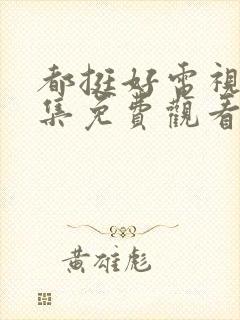 都挺好電視
集免費觀看
黃雄彪